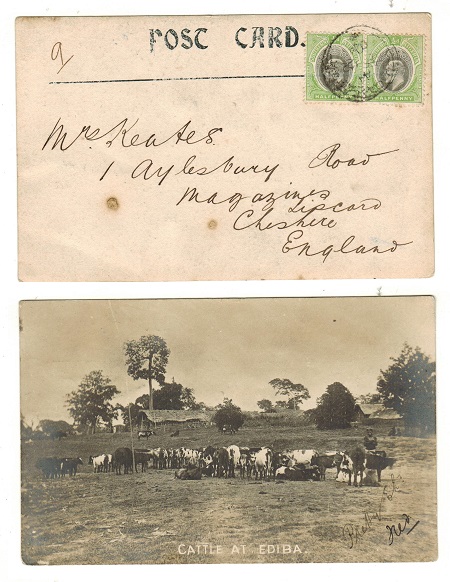 POST CARD.
HALFPENNY HALFPENNY
Mrs Keates
1 Aylesbury Road
Magazines
Liscard
Cheshire
England
CATTLE AT EDIBA.